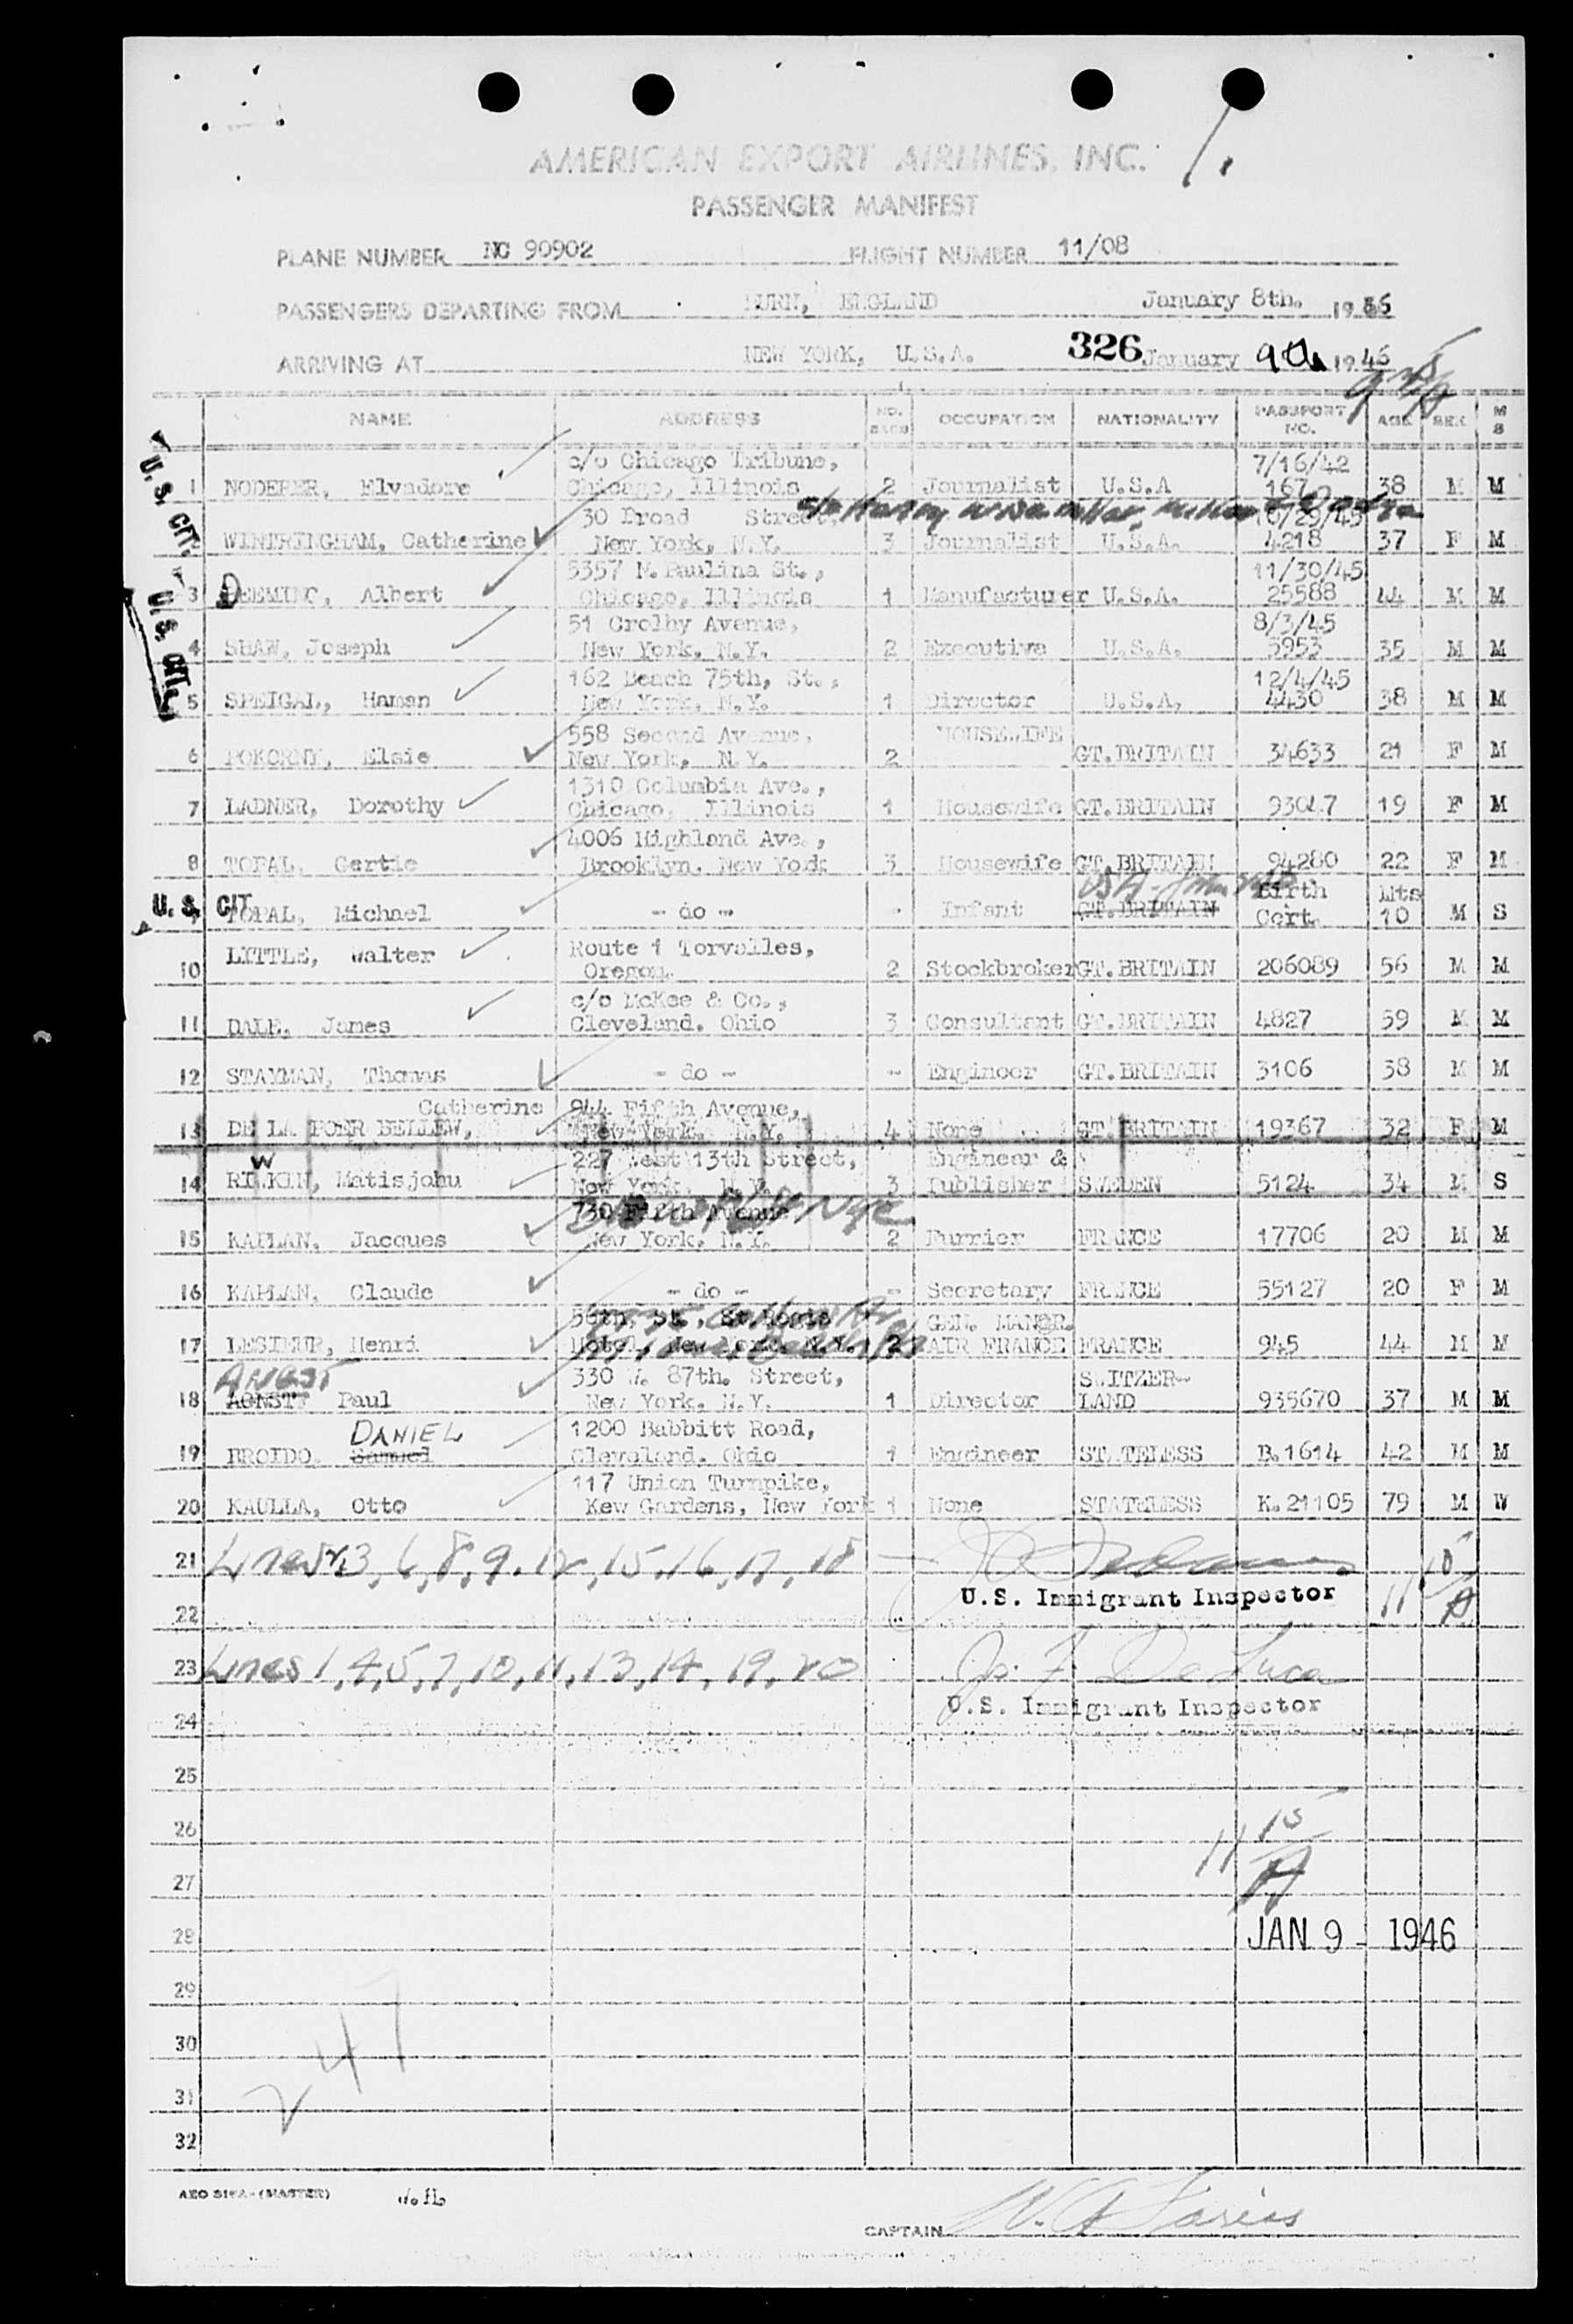 AMERICAN EXPORT AIRLINES, INC. 1.
PASSENGER MANIFEST
PLANE NUMBER NC 90902 FLIGHT NUMBER 11/08
PASSENGERS DEPARTING FROM HURN, ENGLAND January 8th. 1946
ARRIVING AT NEW YORK, U.S.A. 326 January 9th 1946
NAME ADDRESS NO. BAGS OCCUPATION NATIONALITY PASSPORT NO. AGE SEX M S
U.S. CIT.
c/o Chicago Tribune, 7/16/42
1 NODERER, Elvadore Chicago, Illinois 2 Journalist U.S.A 38 M M
30 Broad Street, 10/29/45
WINTRINGHAM, Catherine New York, N.Y. 3 Journalist U.S.A. 4218 37 F M
5357 N. Paulina St., 11/30/45
3 DEEMING, Albert Chicago, Illinois 1 Manufacturer U.S.A. 25588 44 M M
U.S. CIT.
51 Crolby Avenue, 8/3/45
4 SHAW, Joseph New York, N.Y. 2 Executive U.S.A. 5953 35 M M
162 Beach 75th, St., 12/4/45
5 SPEIGAL, Haman New York, N.Y. 1 Director U.S.A. 4430 38 M M
558 Second Avenue, HOUSEWIFE
6 POKORNY, Elsie New York, N.Y. 2 GT.BRITAIN 34633 21 F M
1310 Columbia Ave.,
7 LADNER, Dorothy Chicago, Illinois 1 Housewife GT.BRITAIN 93047 19 F M
4006 Highland Ave.,
8 TOPAL, Gertie Brooklyn. New York 3 Housewife GT.BRITAIN 94280 22 F M
USA Birth Mts
U.S. CIT. TOPAL, Michael - do - - Infant GT.BRITAIN Cert. 10 M S
LITTLE, Walter Route 1 Torvalles,
10 Oregon. 2 Stockbroker GT.BRITAIN 206089 56 M M
c/o McKee & Co.,
11 DALE, James Cleveland. Ohio 3 Consultant GT.BRITAIN 4827 59 M M
12 STAYMAN, Thomas - do - - Engineer GT.BRITAIN 3106 38 M M
Catherine 944 Fifth Avenue,
13 DE LA POER BELLEW, New York. N.Y. 4 None GT.BRITAIN 19367 32 F M
W 227 West 13th Street, Engineer &
14 RIVKIN, Matisjohu New York. N.Y. 3 Publisher SWEDEN 5124 34 M S
730 Fifth Avenue NYC
15 KAPLAN. Jacques New York. N.Y. 2 Furrier FRANCE 17706 20 M M
16 KAPLAN, Claude - do - - Secretary FRANCE 55127 20 F M
56th, St., St Regis GEN. MANGR.
17 LESIEUR, Henri Hotel, New York. N.Y. 2 AIR FRANCE FRANCE 945 44 M M
ANGST 330 W. 87th. Street, SWITZER-
18 AGNST, Paul New York. N.Y. 1 Director LAND 935670 37 M M
DANIEL 1200 Babbitt Road,
19 BROIDO. Samuel Cleveland. Ohio 1 Engineer STATELESS B.1614 42 M M
117 Union Turnpike,
20 KAULLA, Otto Kew Gardens, New York 1 None STATELESS K.21105 79 M W
21 Lines 2, 3, 6, 8, 9, 12, 15, 16, 17, 18 -
22 U.S. Immigrant Inspector 11 15/A
23 Lines 1, 4, 5, 7, 10, 11, 13, 14, 19, 20 Jo. F. De Luca
24 U.S. Immigrant Inspector
25
26 11 15/A
27
28 JAN 9 - 1946
29
30 247
31
32
CAPTAIN W. A. Faries